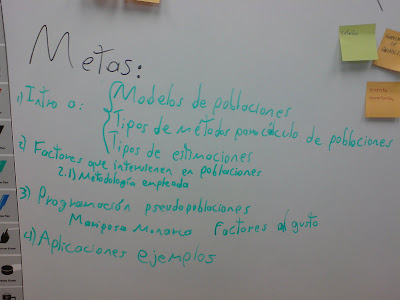 Metas:
1) Intro a: Modelos de poblaciones
Tipos de métodos para cálculo de poblaciones
Tipos de estimaciones
2) Factores que intervienen en poblaciones
2.1) Metodología empleada
3) Programación pseudopoblaciones
Mariposa Monarca Factores al gusto
4) Aplicaciones ejemplos